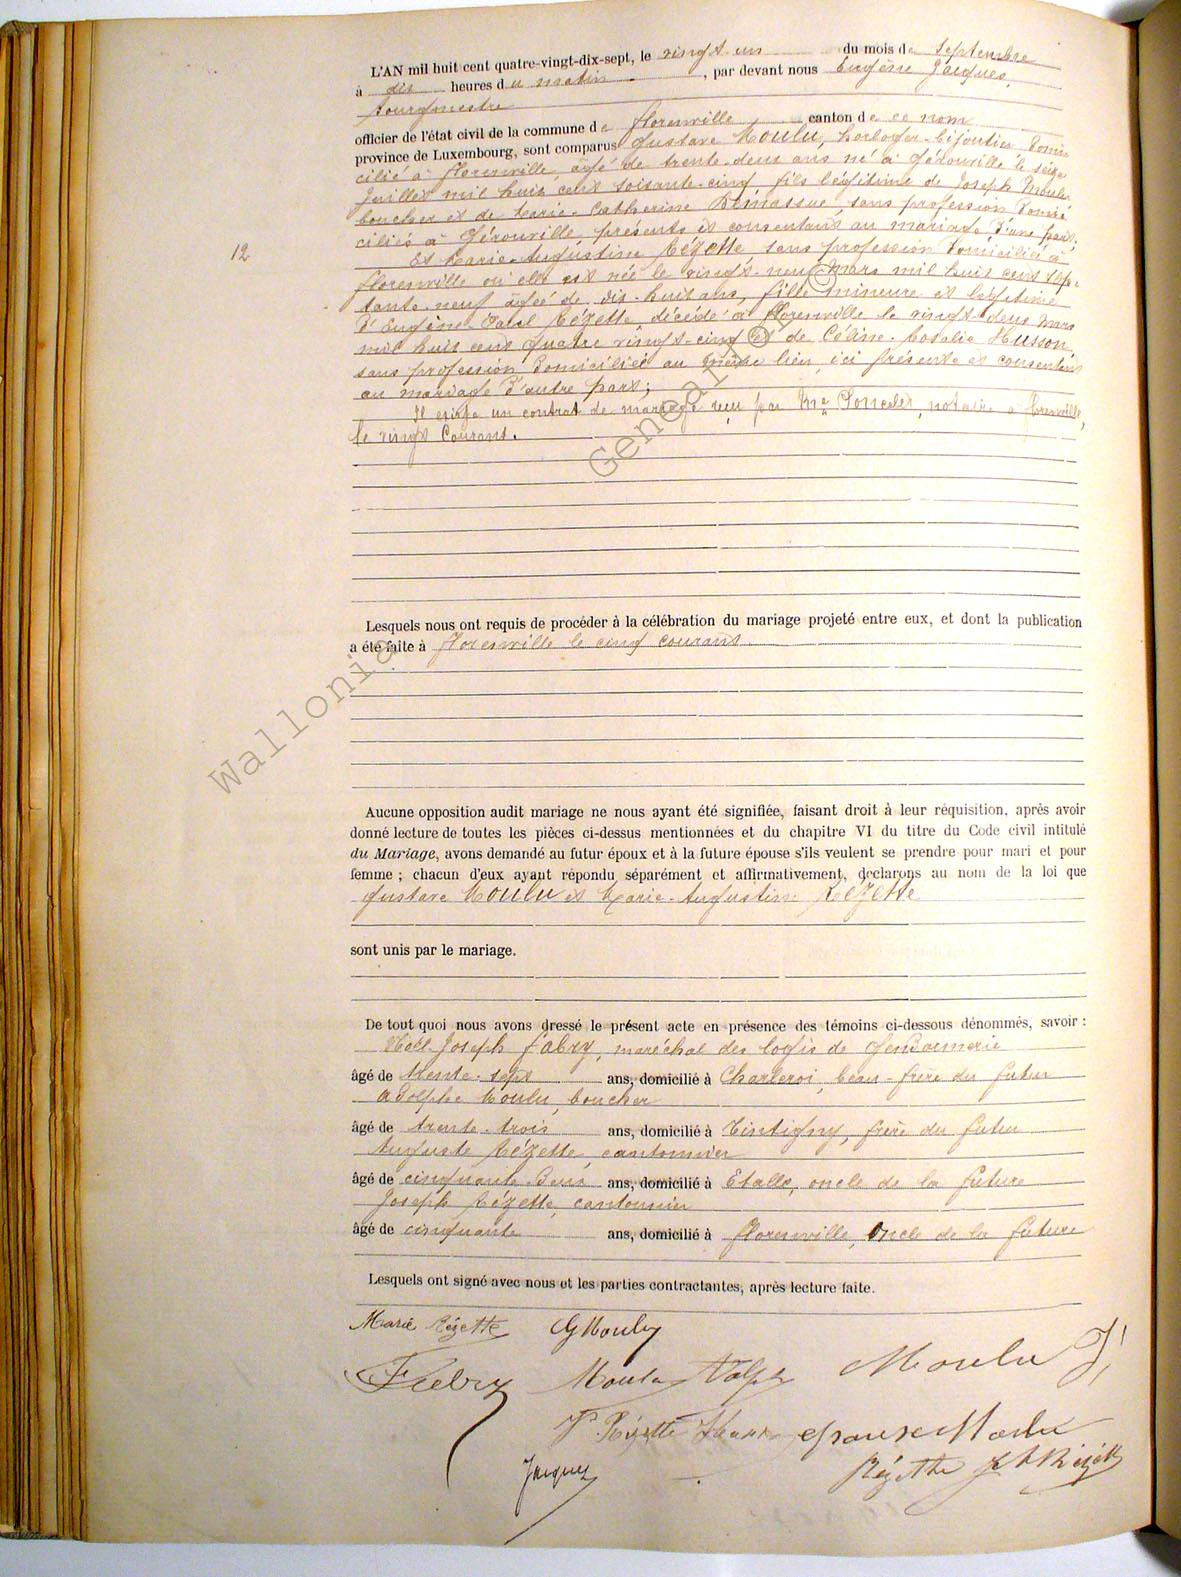 L'AN mil huit cent quatre-vingt-dix-sept, le vingt un du mois de septembre
à dix heures du matin, par devant nous Eugène Jacques,
bourgmestre
officier de l'état civil de la commune de Florenville canton de ce nom
province de Luxembourg, sont comparus Gustave Moulu, horloger-bijoutier domi
cilié à Florenville, âgé de trente-deux ans né à Gérouville le seize
Juillet mil huit cent soixante-cinq, fils légitime de Joseph Moulu,
boucher et de Marie-Catherine Demasse, sans profession domi
ciliés à Gérouville, présents et consentants au mariage d'une part;
12
Et Marie-Augustine Rézette sans profession domiciliée à
Florenville où elle est née le vingt-neuf Mars mil huit cent sep-
tante-neuf âgée de dix-huit ans, fille mineure et légitime
d'Eugène Rézette décédé à Florenville le vingt-deux Mars
mil huit cent quatre vingt-cinq et de Céline-Rosalie Husson,
sans profession domiciliée au même lieu, ici présente et consentant
au mariage d'autre part;
Il existe un contrat de mariage reçu par Me Poncelet, notaire à Florenville,
le vingt Courant.
Lesquels nous ont requis de procéder à la célébration du mariage projeté entre eux, et dont la publication
a été faite à Florenville le cinq courant.
Aucune opposition audit mariage ne nous ayant été signifiée, faisant droit à leur réquisition, après avoir
donné lecture de toutes les pièces ci-dessus mentionnées et du chapitre VI du titre du Code civil intitulé
du Mariage, avons demandé au futur époux et à la future épouse s'ils veulent se prendre pour mari et pour
femme ; chacun d'eux ayant répondu séparément et affirmativement, déclarons au nom de la loi que
Gustave Moulu et Marie-Augustine Rézette
sont unis par le mariage.
De tout quoi nous avons dressé le présent acte en présence des témoins ci-dessous dénommés, savoir :
Noël-Joseph Fabry, maréchal des logis de Gendarmerie
âgé de trente-sept ans, domicilié à Charleroi, beau-frère du futur
Adolphe Moulu, boucher
âgé de trente-trois ans, domicilié à Tintigny, frère du futur
Auguste Rézette, cantonnier
âgé de cinquante-deux ans, domicilié à Etalle, oncle de la future
Joseph Rézette, cantonnier
âgé de cinquante ans, domicilié à Florenville, oncle de la future
Lesquels ont signé avec nous et les parties contractantes, après lecture faite.
Marie Rézette G Moulu
Fabry Moulu Adolphe Moulu J
Rézette épouse Moulu
Jacques Rézette Rézette
Wallonia Genealogy ©